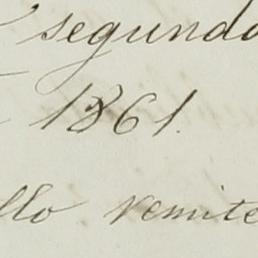 segundo
1861.
llo remite